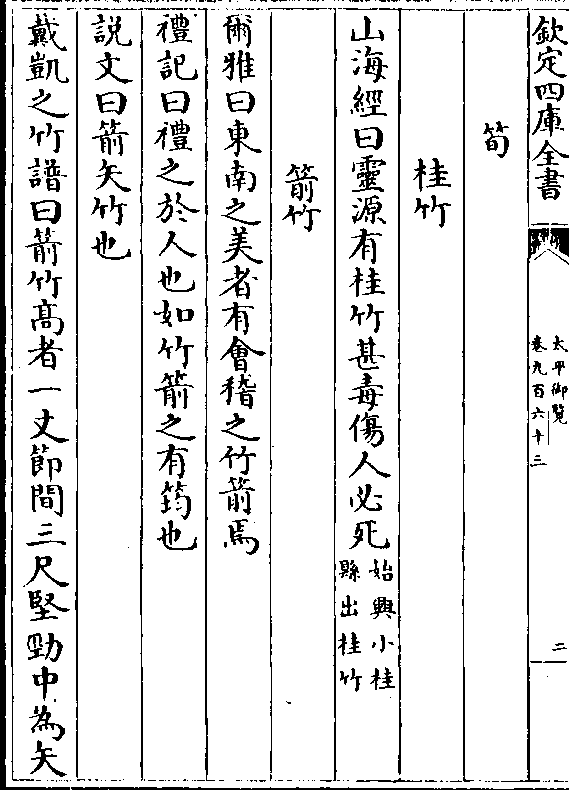 欽定四庫全書
太平御覽
卷九百六十三
二
筍
桂竹
山海經曰靈源有桂竹甚毒傷人必死始興小桂
縣出桂竹
箭竹
爾雅曰東南之美者有會稽之竹箭焉
禮記曰禮之於人也如竹箭之有筠也
説文曰箭矢竹也
戴凱之竹譜曰箭竹髙者一丈節間三尺堅勁中為矢